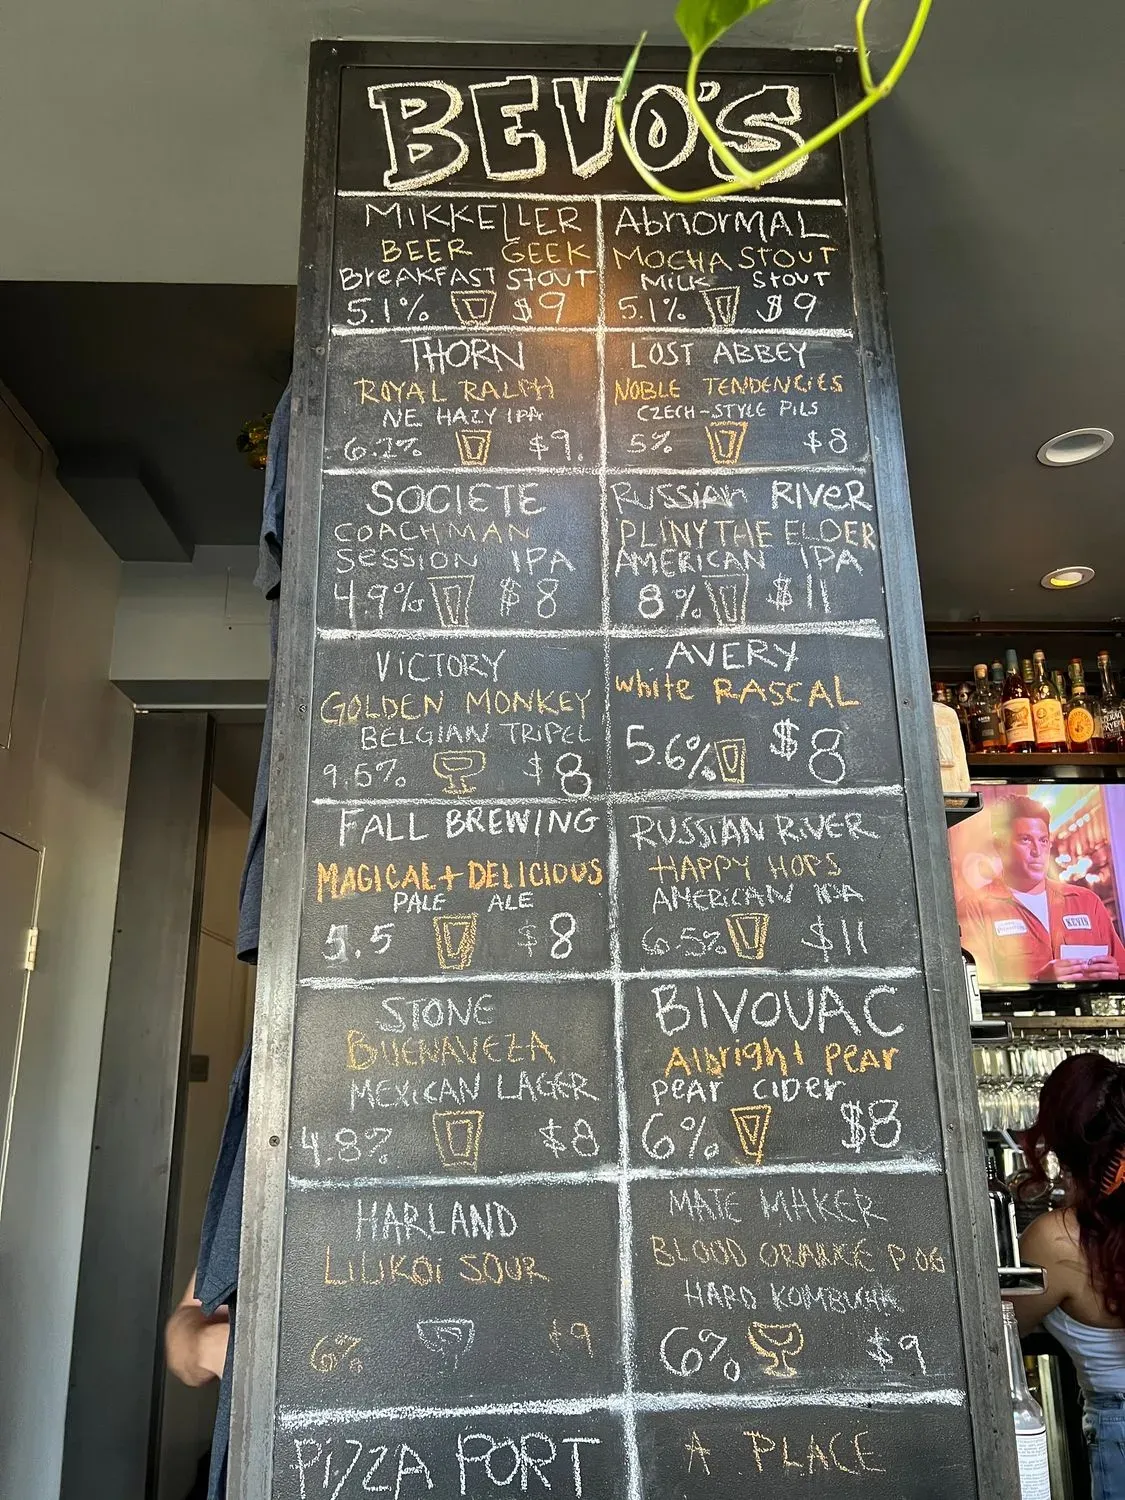 BEVO'S
MIKKELLER
BEER GEEK
BREAKFAST STOUT
5.1% $9
Abnormal
MOCHA STOUT
MILK STOUT
5.1% $9
THORN
ROYAL RALPH
NE HAZY IPA
6.2% $9.
LOST ABBEY
NOBLE TENDENCIES
CZECH-STYLE PILS
5% $8
SOCIETE
COACHMAN
SESSION IPA
4.9% $8
RUSSIAN RIVER
PLINY THE ELDER
AMERICAN IPA
8% $11
VICTORY
GOLDEN MONKEY
BELGIAN TRIPEL
9.5% $8
AVERY
white RASCAL
5.6% $8
FALL BREWING
MAGICAL + DELICIOUS
PALE ALE
5.5 $8
RUSSIAN RIVER
HAPPY HOPS
AMERICAN IPA
6.5% $11
STONE
BUENAVEZA
MEXICAN LAGER
4.8% $8
BIVOUAC
Albright Pear
Pear cider
6% $8
HARLAND
LILIKOI SOUR
6% $9
MATE MAKER
BLOOD ORANGE P.OG
HARD KOMBUCHA
6% $9
PIZZA PORT
A PLACE
KEVIN